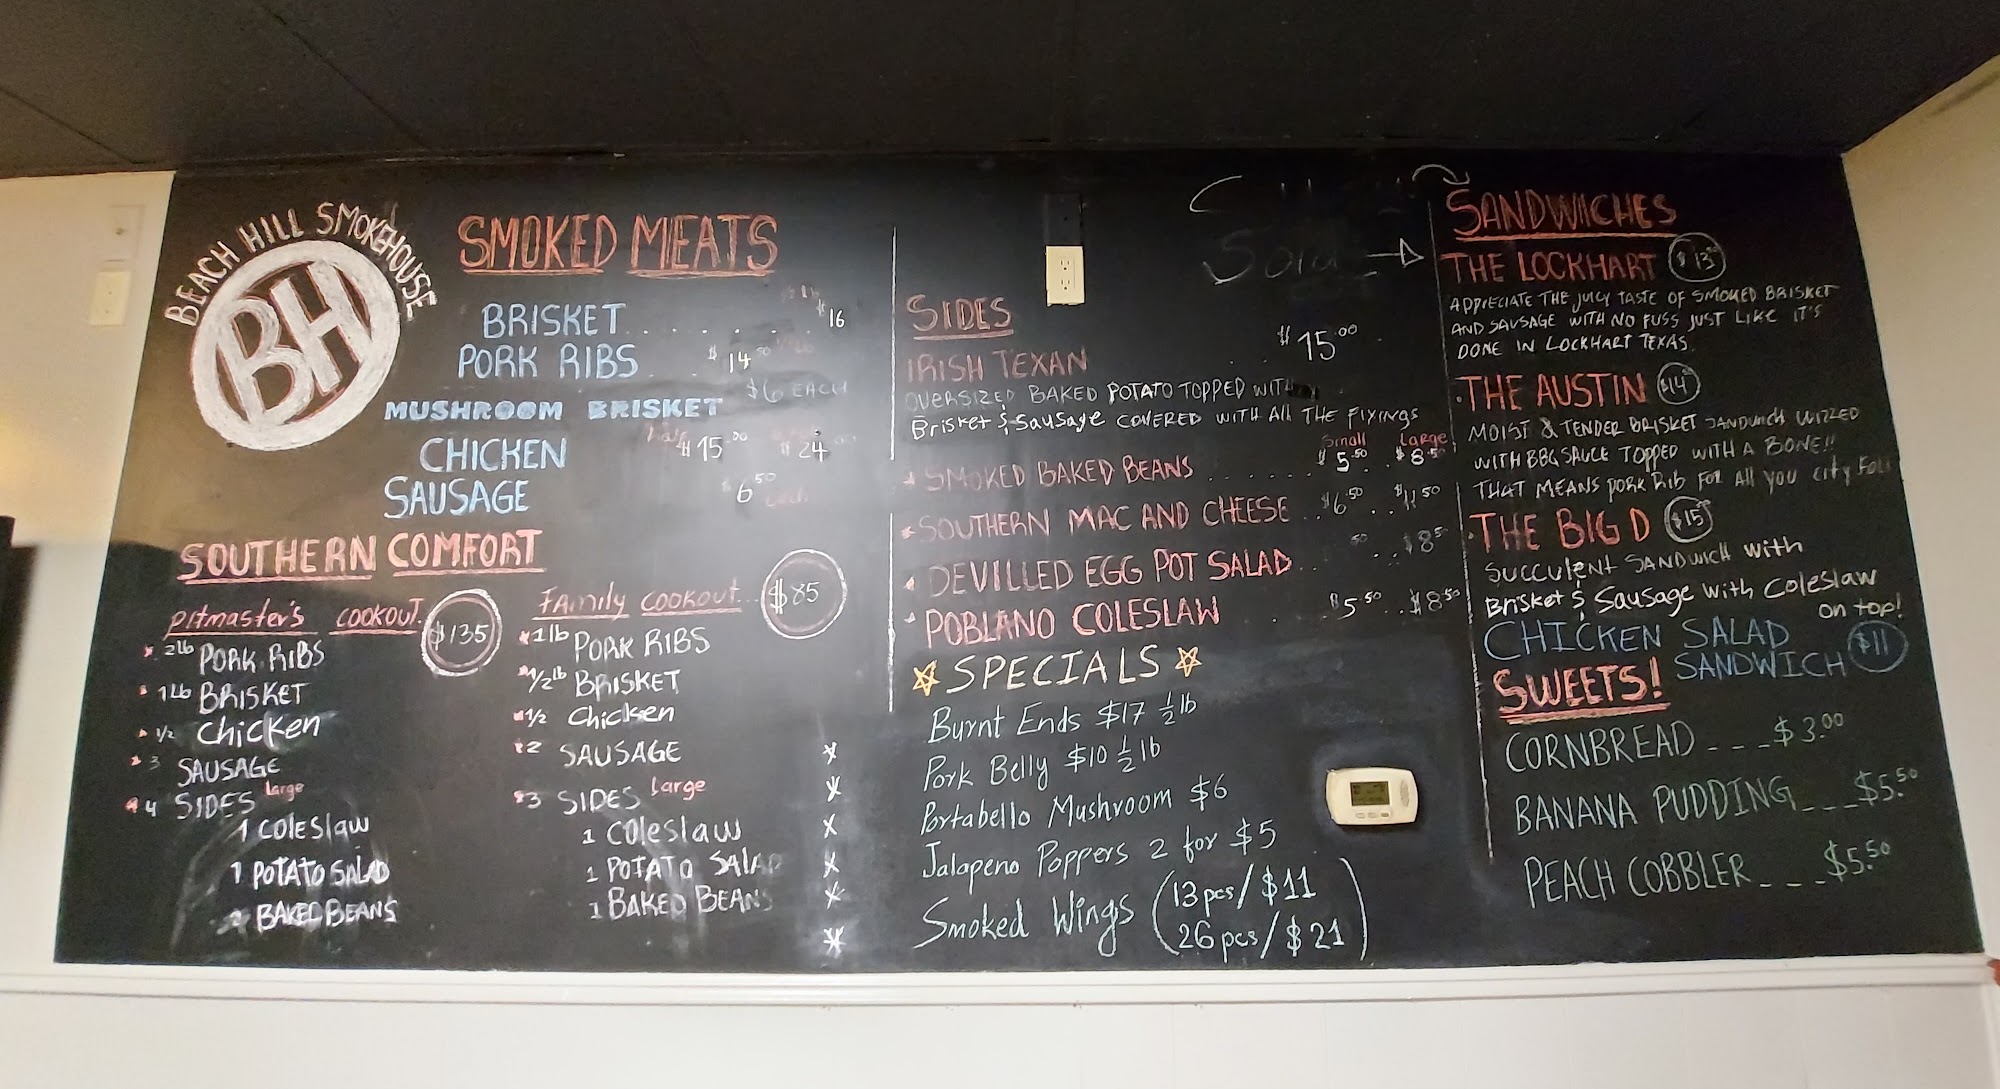 BEACH HILL SMOKEHOUSE
BH
SMOKED MEATS
BRISKET . . . . . . . $16
PORK RIBS . . . $14.50
MUSHROOM BRISKET $6 EACH
CHICKEN $15.00 $24
SAUSAGE $6.50
SOUTHERN COMFORT
PITMASTER'S COOKOUT. $135
* 2lb PORK RIBS
* 1Lb BRISKET
* 1/2 Chicken
* 3 SAUSAGE
* 4 SIDES Large
1 COLESLAW
1 POTATO SALAD
2 BAKED BEANS
FAMILY COOKOUT... $85
* 1lb PORK RIBS
* 1/2lb BRISKET
* 1/2 Chicken
* 2 SAUSAGE
* 3 SIDES Large
1 COLESLAW
1 POTATO SALAD
1 BAKED BEANS
SIDES
IRISH TEXAN . . $15.00
OVERSIZED BAKED POTATO TOPPED WITH
Brisket & Sausage COVERED WITH All THE FIXYNGS
Small Large
* SMOKED BAKED BEANS . . . . . . $5.50 . . $8.50
* SOUTHERN MAC AND CHEESE . . $6.50 . . $11.50
* DEVILLED EGG POT SALAD . . . .50 . . . $8.50
* POBLANO COLESLAW $5.50 . . $8.50
SPECIALS
Burnt Ends $17 1/2 lb
Pork Belly $10 1/2 lb
Portabello Mushroom $6
Jalapeno Poppers 2 for $5
Smoked Wings (13 pcs/$11
26 pcs/$21)
SANDWICHES
THE LOCKHART $13
APPRECIATE THE JUICY TASTE OF SMOKED BRISKET
AND SAUSAGE WITH NO FUSS JUST LIKE IT'S
DONE IN LOCKHART TEXAS.
THE AUSTIN $14
MOIST & TENDER BRISKET SANDWICH WIZZED
WITH BBQ SAUCE TOPPED WITH A BONE!!
THAT MEANS PORK Rib FOR All YOU City
THE BIG D $15
SUCCULENT SANDWICH with
Brisket & Sausage with Coleslaw
on top!
CHICKEN SALAD
SANDWICH $11
SWEETS!
CORNBREAD _ _ _ $3.00
BANANA PUDDING _ _ _ $5.50
PEACH COBBLER _ _ _ $5.50